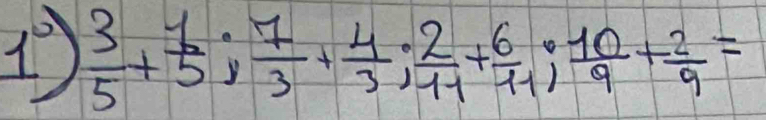 1°) 3/5 + 1/5 ; 7/3 + 4/3 ; 2/11 + 6/11 ; 10/9 + 2/9 =